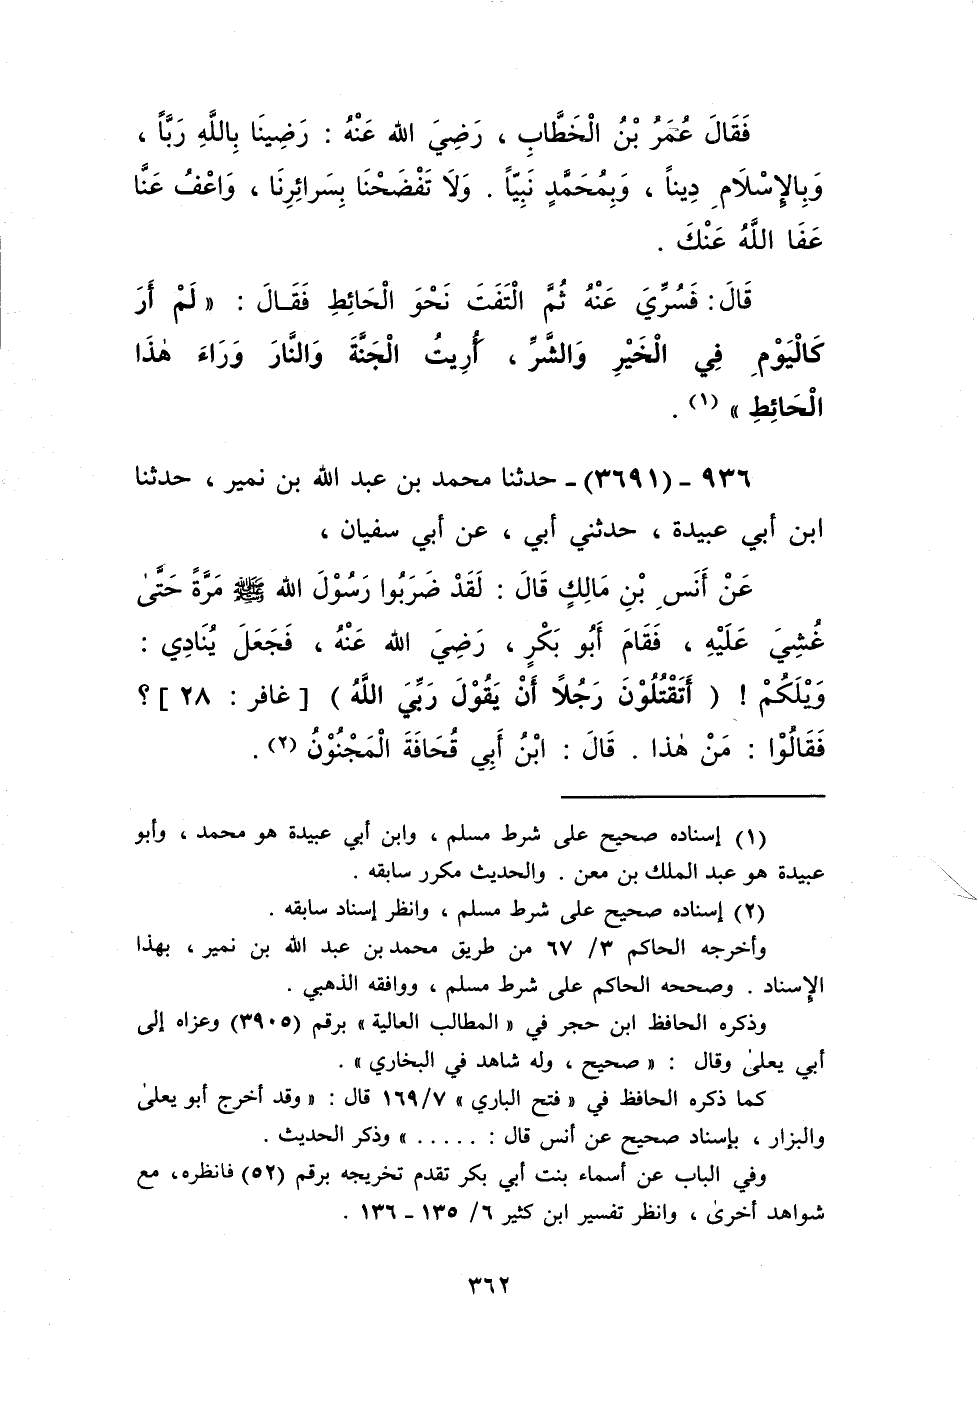 فَقَالَ عُمَرُ بْنُ الْخَطَّابِ ، رَضِيَ الله عَنْهُ : رَضِينَا بِاللَّهِ رَبَّاً ،
وَبِالإِسْلَامِ دِيناً ، وَبِمُحَمَّدٍ نَبِيّاً . وَلَا تَفْضَحْنَا بِسَرائِرِنَا ، وَاعْفُ عَنَّا
عَفَا اللَّهُ عَنْكَ .
قَالَ : فَسُرِّيَ عَنْهُ ثُمَّ الْتَفَتَ نَحْوَ الْحَائِطِ فَقَـالَ : « لَمْ أَرَ
كَالْيَوْمِ فِي الْخَيْرِ وَالشَّرِّ ، أُرِيتُ الْجَنَّةَ وَالنَّارَ وَرَاءَ هٰذَا
الْحَائِطِ » (١) .
٩٣٦ - (٣٦٩١) - حدثنا محمد بن عبد الله بن نمير ، حدثنا
ابن أبي عبيدة ، حدثني أبي ، عن أبي سفيان ،
عَنْ أَنَسِ بْنِ مَالِكٍ قَالَ : لَقَدْ ضَرَبُوا رَسُوْلَ الله ﷺ مَرَّةً حَتَّىٰ
غُشِيَ عَلَيْهِ ، فَقَامَ أَبُو بَكْرٍ ، رَضِيَ الله عَنْهُ ، فَجَعَلَ يُنَادِي :
وَيْلَكُمْ ! ( أَتَقْتُلُوْنَ رَجُلاً أَنْ يَقُوْلَ رَبِّيَ اللَّهُ ) [ غافر : ٢٨ ] ؟
فَقَالُوْا : مَنْ هٰذا . قَالَ : ابْنُ أَبِي قُحَافَةَ الْمَجْنُوْنُ (٢) .
(١) إسناده صحيح على شرط مسلم ، وابن أبي عبيدة هو محمد ، وأبو
عبيدة هو عبد الملك بن معن . والحديث مكرر سابقه .
(٢) إسناده صحيح على شرط مسلم ، وانظر إسناد سابقه .
وأخرجه الحاكم ٣/ ٦٧ من طريق محمد بن عبد الله بن نمير ، بهذا
الإسناد . وصححه الحاكم على شرط مسلم ، ووافقه الذهبي .
وذكره الحافظ ابن حجر في « المطالب العالية » برقم (٣٩٠٥) وعزاه إلى
أبي يعلىٰ وقال : « صحيح ، وله شاهد في البخاري » .
كما ذكره الحافظ في « فتح الباري » ١٦٩/٧ قال : « وقد أخرج أبو يعلىٰ
والبزار ، بإسناد صحيح عن أنس قال : ..... » وذكر الحديث .
وفي الباب عن أسماء بنت أبي بكر تقدم تخريجه برقم (٥٢) فانظره، مع
شواهد أخرىٰ ، وانظر تفسير ابن كثير ٦/ ١٣٥ - ١٣٦ .
٣٦٢